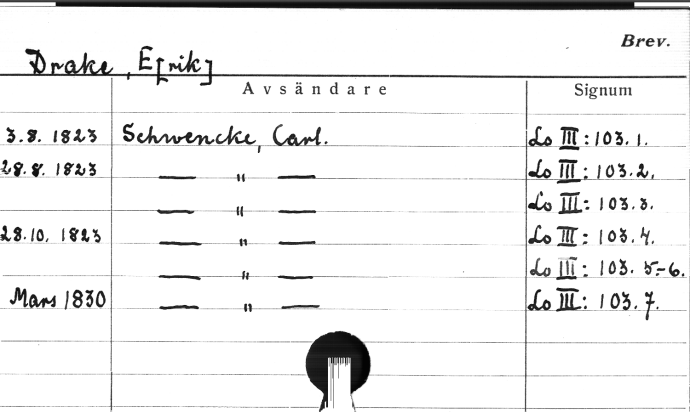 Brev.
Drake, E[rik]
Avsändare Signum
3.8. 1823 Schwencke, Carl. Lo III: 103.1.
28.8. 1823 — " — Lo III: 103.2.
— " — Lo III: 103.3.
28.10. 1823 — " — Lo III: 103.4.
— " — Lo III: 103.5-6.
Mars 1830 — " — Lo III: 103.7.